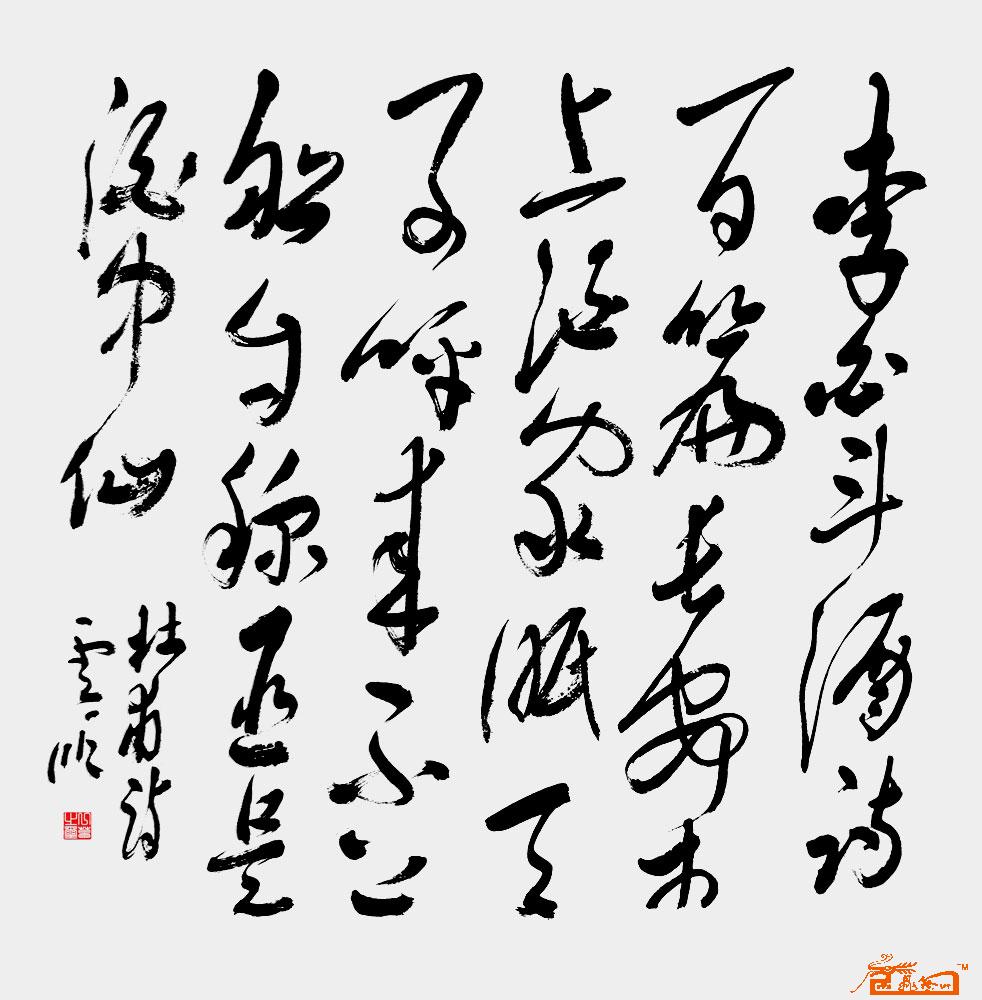 李白斗酒诗
百篇长安市
上酒家眠天
子呼来不上
船自称臣是
酒中仙
杜甫诗
雲